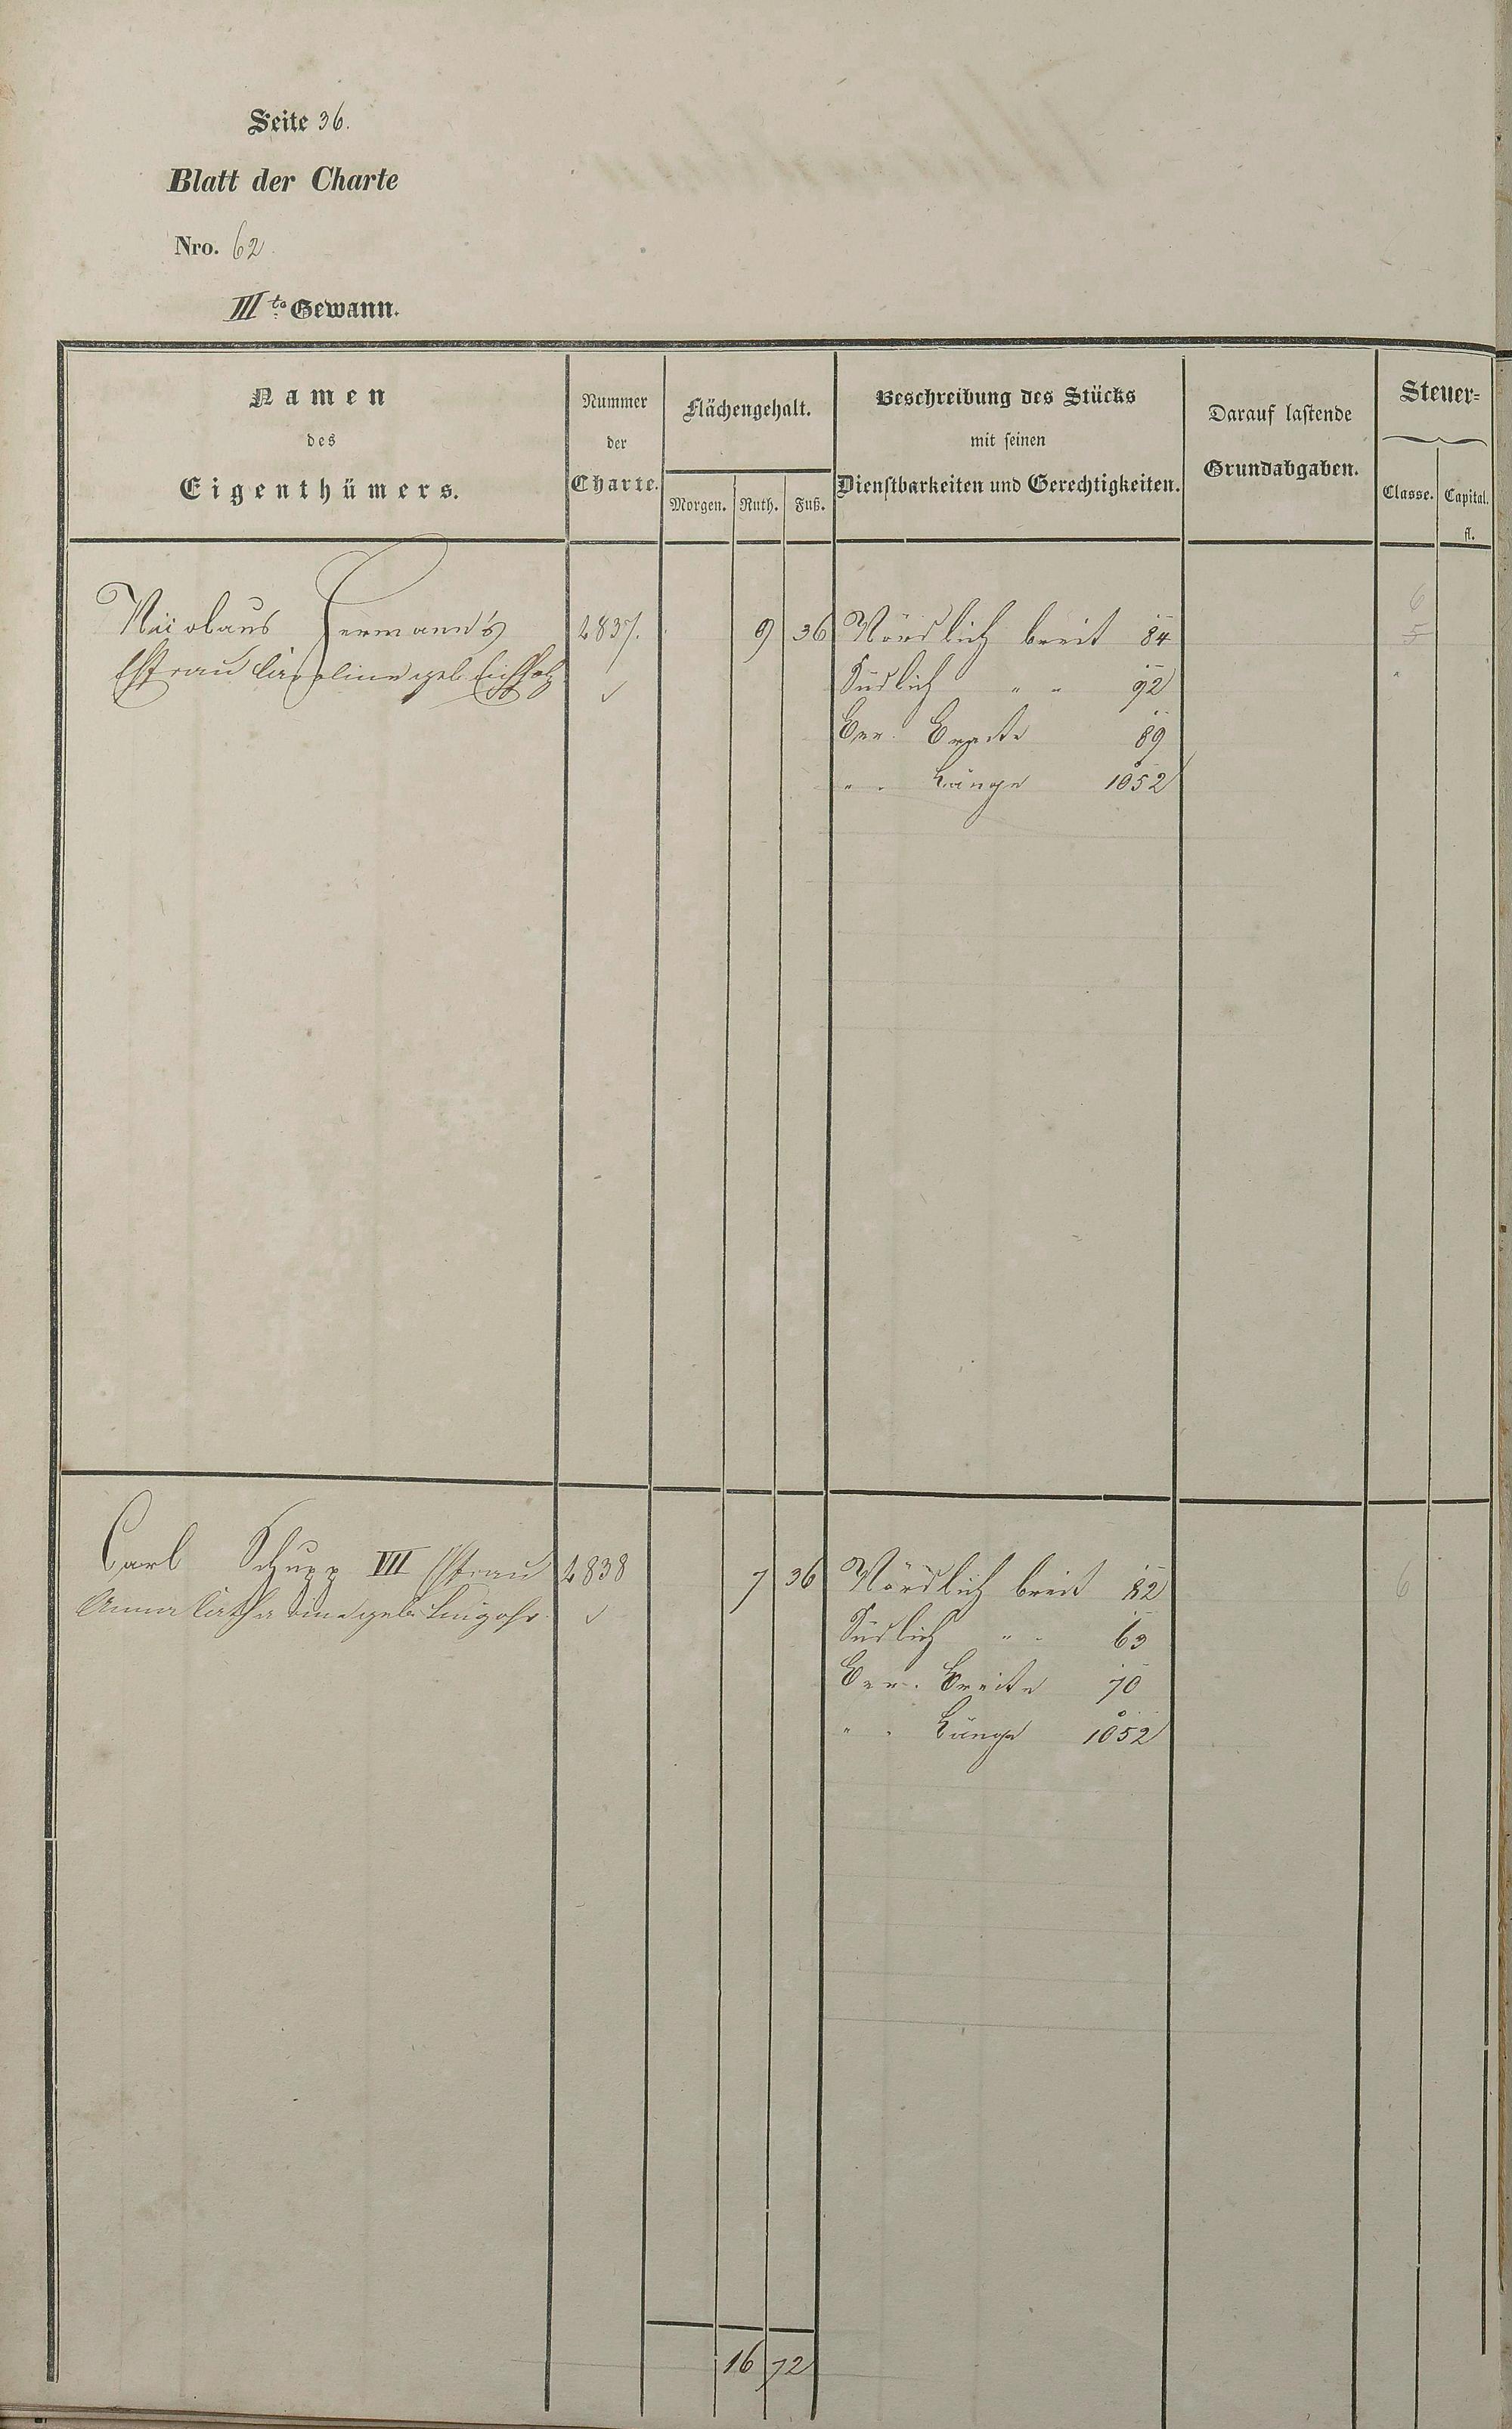 Seite 36.
Blatt der Charte
Nro. 62
III te Gewann.
Namen
des
Eigenthümers.
Nummer
der
Charte.
Flächengehalt.
Morgen. Ruth. Fuß.
Beschreibung des Stücks
mit seinen
Dienstbarkeiten und Gerechtigkeiten.
Darauf lastende
Grundabgaben.
Steuer-
Classe. Capital.
fl.
6
Nicolaus Hermann's 2837. 9 36 Nördlich breit 84 5
Ehfrau Caroline geb. Südlich " " 92
Ver. Breite 89
" " Länge 1052
Carl Schupp VII Ehfrau 2838 7 36 Nördlich breit 82 6
Anna Catharina geb. Südlich " " 63
Ver. Breite 70
" " Länge 1052
16 72